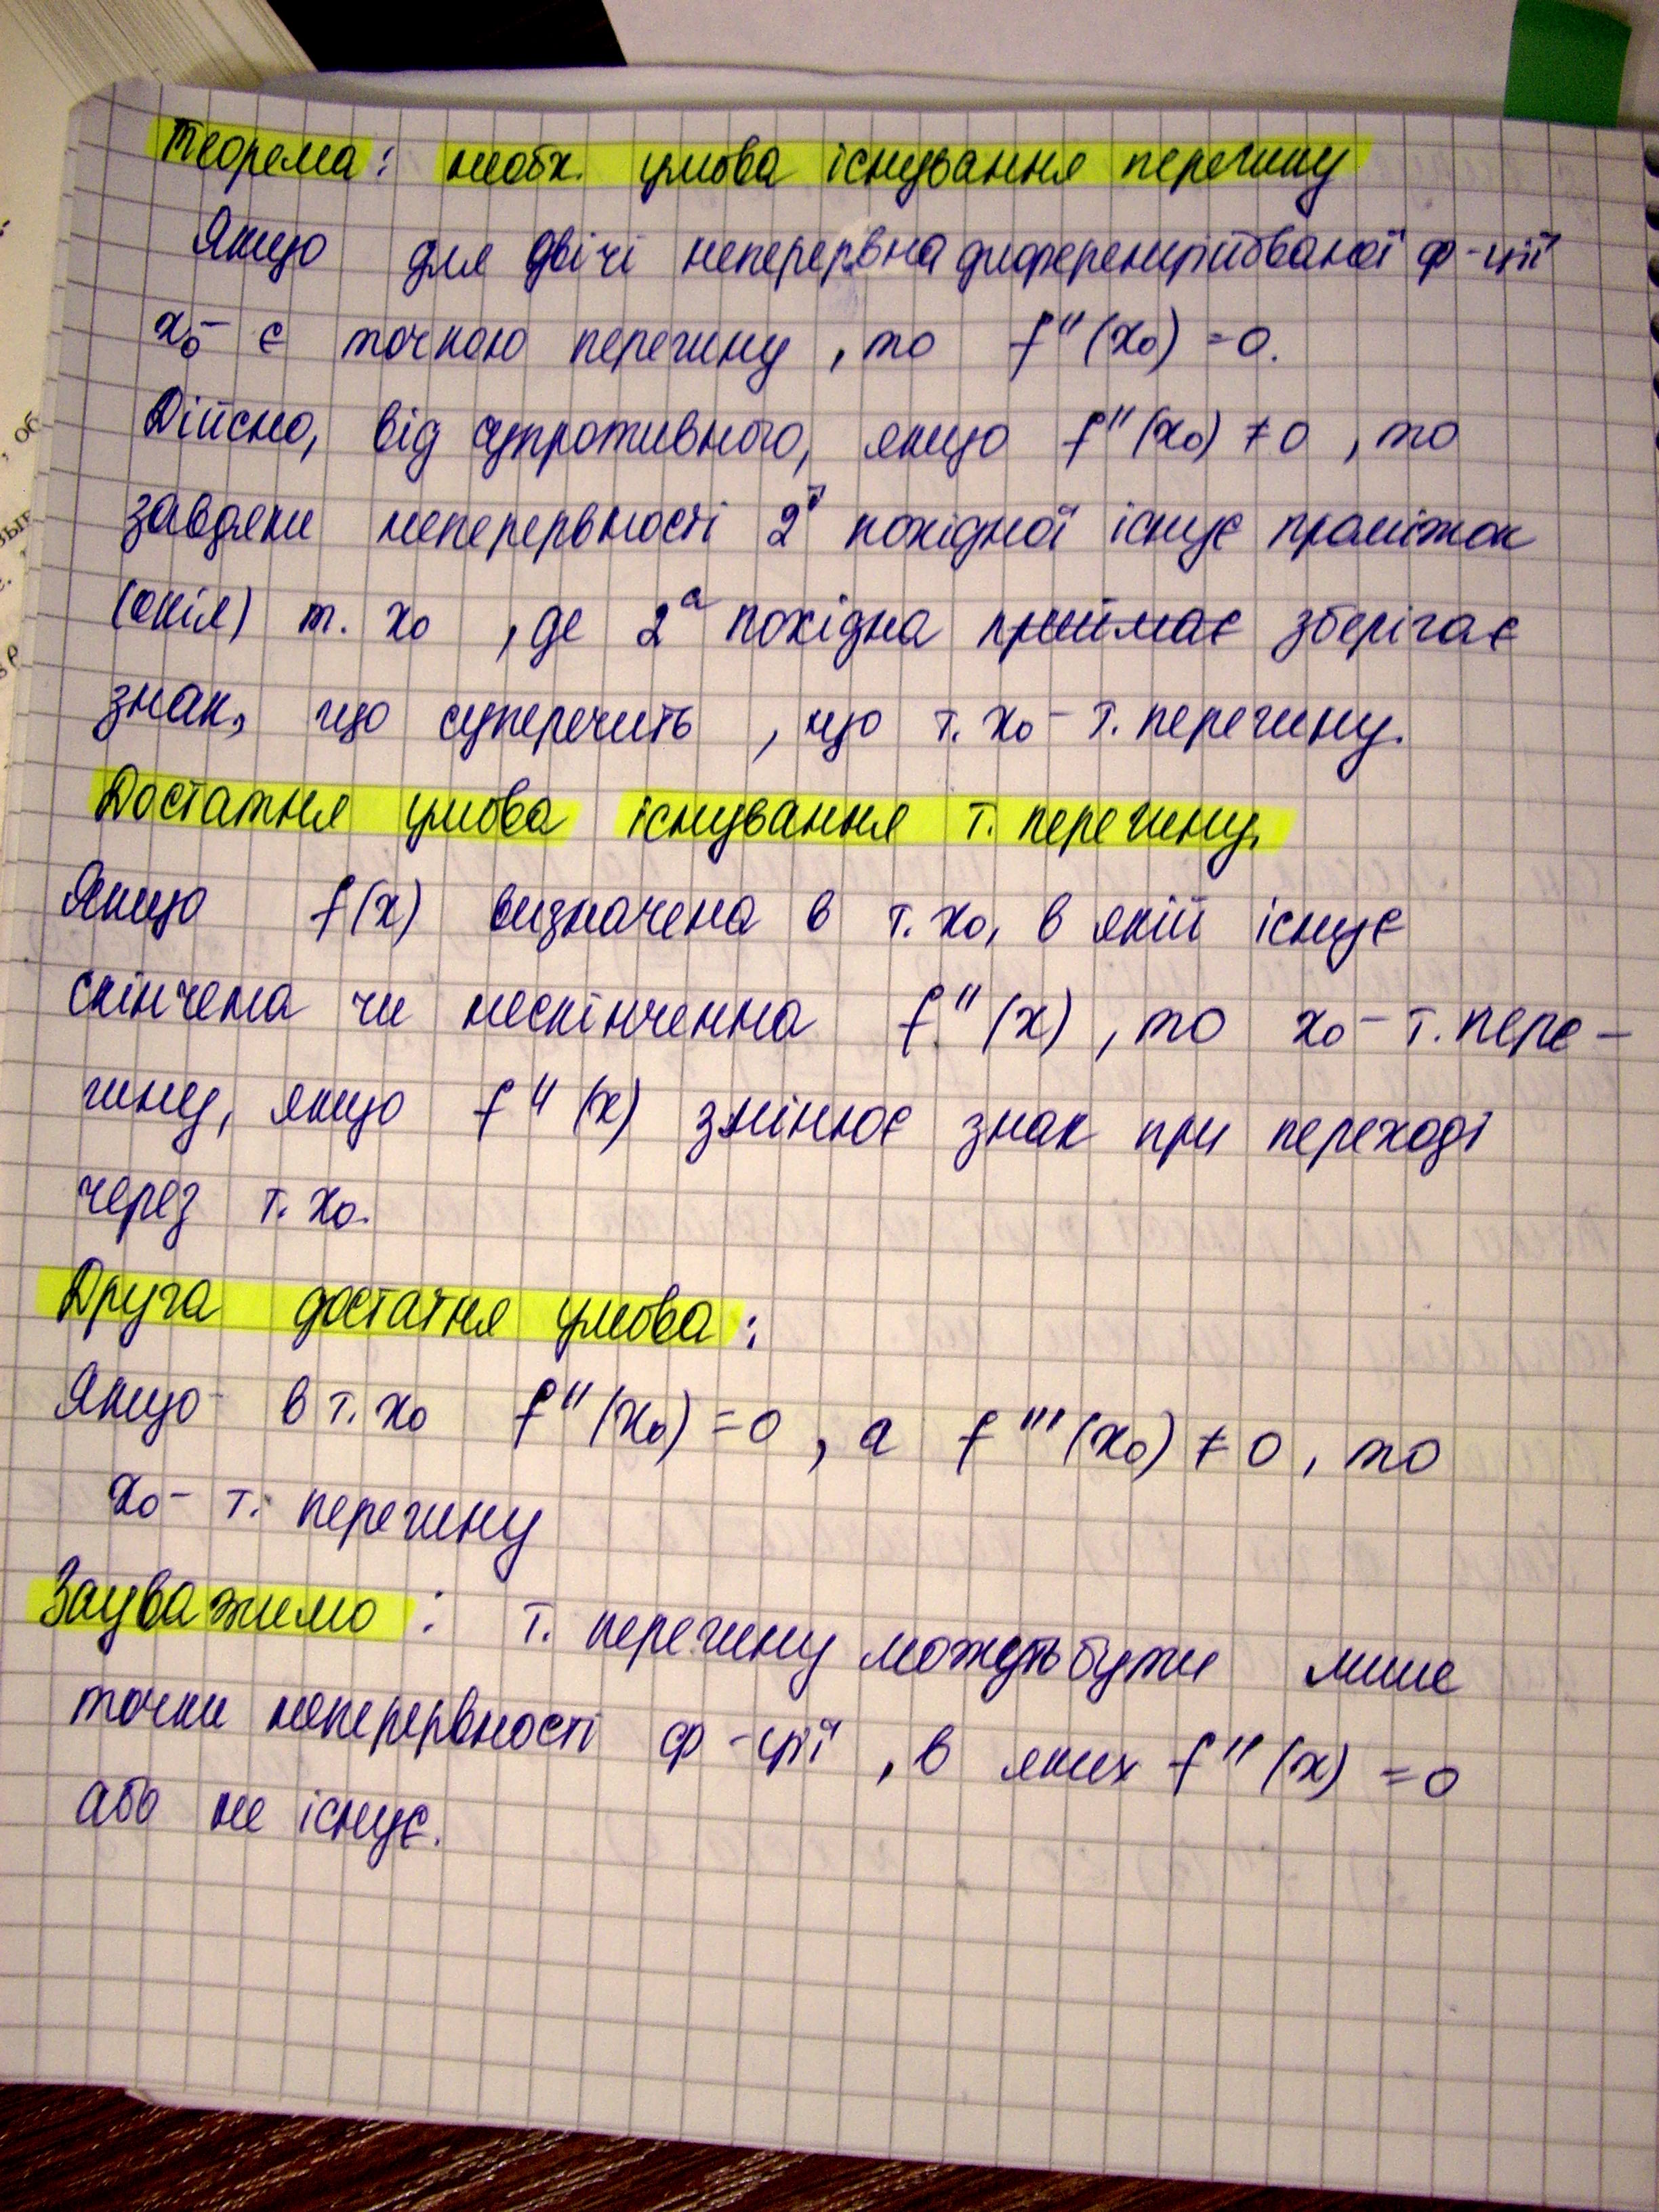 Теорема: необх. умова існування перегину
Якщо для двічі неперервна диференційованої ф-ції
x₀ - є точкою перегину, то f''(x₀) = 0.
Дійсно, від супротивного, якщо f''(x₀) ≠ 0, то
завдяки неперервності 2ї похідної існує проміжок
(окіл) т. x₀, де 2а похідна приймає зберігає
знак, що суперечить, що т. x₀ - т. перегину.
Достатня умова існування т. перегину.
Якщо f(x) визначена в т. x₀, в якій існує
скінчена чи нескінченна f''(x), то x₀ - т. пере-
гину, якщо f''(x) змінює знак при переході
через т. x₀.
Друга достатня умова:
Якщо в т. x₀ f''(x₀) = 0, а f'''(x₀) ≠ 0, то
x₀ - т. перегину
Зауважимо: т. перегину можуть бути лише
точки неперервності ф-ції, в яких f''(x) = 0
або не існує.
, об